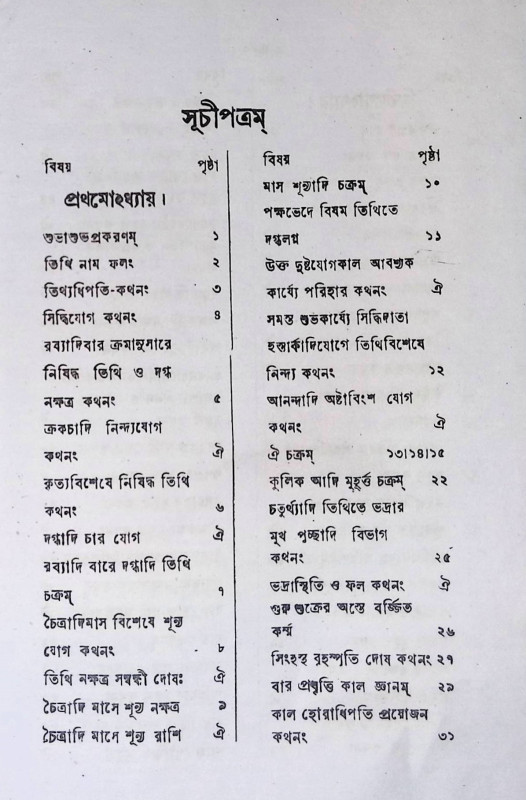 সূচীপত্রম্
বিষয় পৃষ্ঠা
প্রথমোঽধ্যায়।
শুভাশুভপ্রকরণম্ ১
তিথি নাম ফলং ২
তিথ্যধিপতি-কথনং ৩
সিদ্ধিযোগ কথনং ৪
রব্যাদিবার ক্রমানুসারে
নিষিদ্ধ তিথি ও দগ্ধ
নক্ষত্র কথনং ৫
ক্রকচাদি নিন্দ্যযোগ
কথনং ঐ
কৃত্যবিশেষে নিষিদ্ধ তিথি
কথনং ৬
দগ্ধাদি চার যোগ ঐ
রব্যাদি বারে দগ্ধাদি তিথি
চক্রম্ ৭
চৈত্রাদিমাস বিশেষে শূন্য
যোগ কথনং ৮
তিথি নক্ষত্র সম্বন্ধী দোষঃ ঐ
চৈত্রাদি মাসে শূন্য নক্ষত্র ৯
চৈত্রাদি মাসে শূন্য রাশি ঐ
বিষয় পৃষ্ঠা
মাস শূন্যাদি চক্রম্ ১০
পক্ষভেদে বিষম তিথিতে
দগ্ধলগ্ন ১১
উক্ত দুষ্টযোগকাল আবশ্যক
কার্য্যে পরিহার কথনং ঐ
সমস্ত শুভকার্য্যে সিদ্ধিদাতা
হস্তার্কাদিযোগে তিথিবিশেষে
নিন্দ্য কথনং ১২
আনন্দাদি অষ্টাবিংশ যোগ
কথনং ঐ
ঐ চক্রম্ ১৩।১৪।১৫
কুলিক আদি মূহূর্ত্ত চক্রম্ ২২
চতুর্থ্যাদি তিথিতে ভদ্রার
মূখ পুচ্ছাদি বিভাগ
কথনং ২৫
ভদ্রাস্থিতি ও ফল কথনং ঐ
গুরু শুক্রের অস্তে বর্জ্জিত
কর্ম্ম ২৬
সিংহস্থ বৃহস্পতি দোষ কথনং ২৭
বার প্রবৃত্তি কাল জ্ঞানম্ ২৯
কাল হোরাধিপতি প্রয়োজন
কথনং ৩১